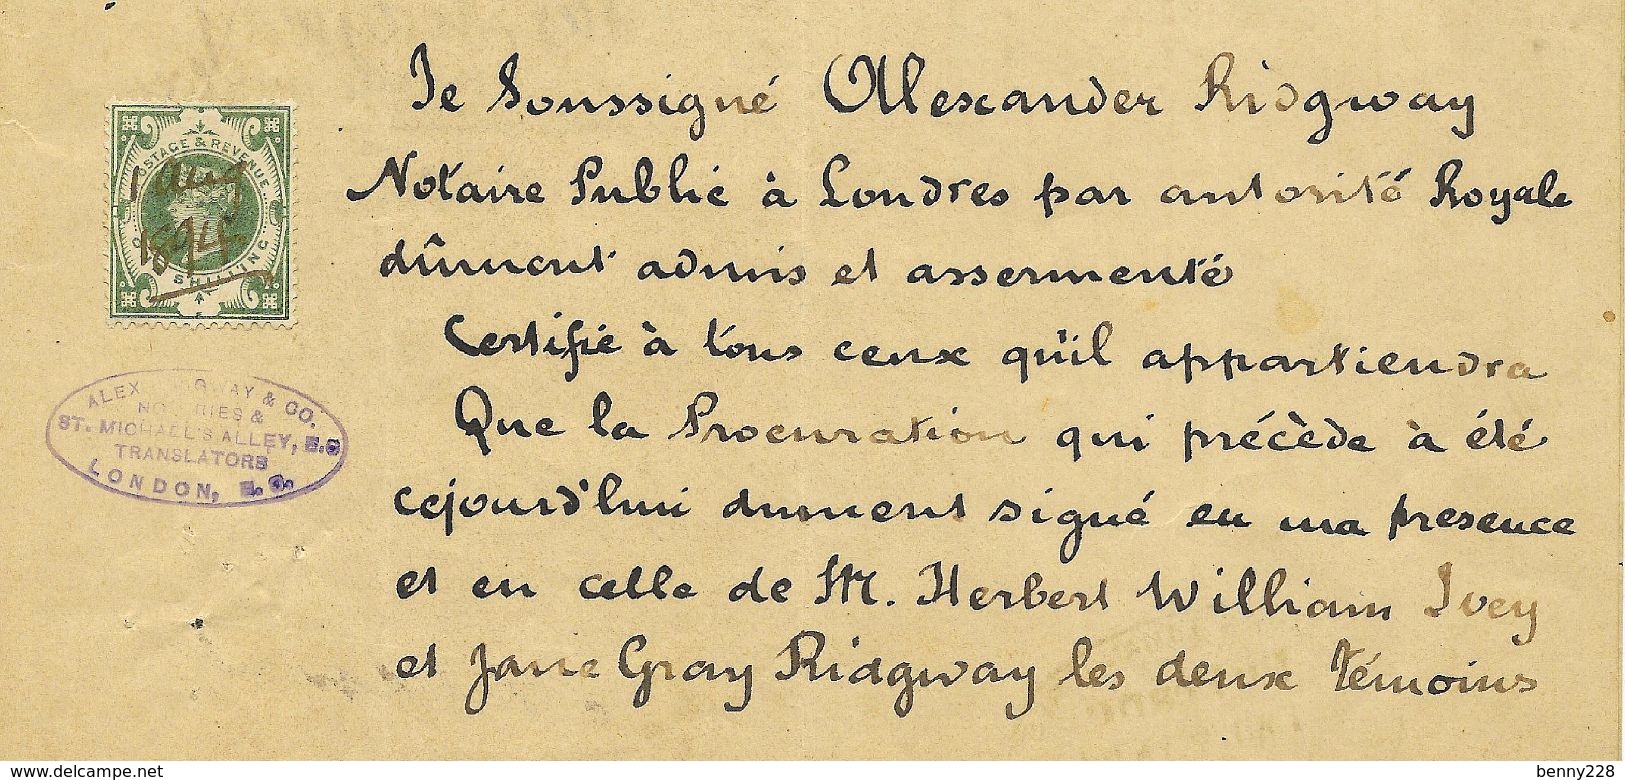 Je Soussigné Alexander Ridgway
Notaire Public à Londres par autorité Royale
dûment admis et assermenté
Certifie à tous ceux qu'il appartiendra
Que la Procuration qui précède à été
cejourd'hui dument signé en ma presence
et en celle de M. Herbert William Ivey
et Jane Gray Ridgway les deux témoins
POSTAGE & REVENUE
1 Aug
1894
SHILLING
ALEX RIDGWAY & CO.
NOTARIES &
ST. MICHAEL'S ALLEY, E.C
TRANSLATORS
LONDON, E.C.
www.delcampe.net
benny228